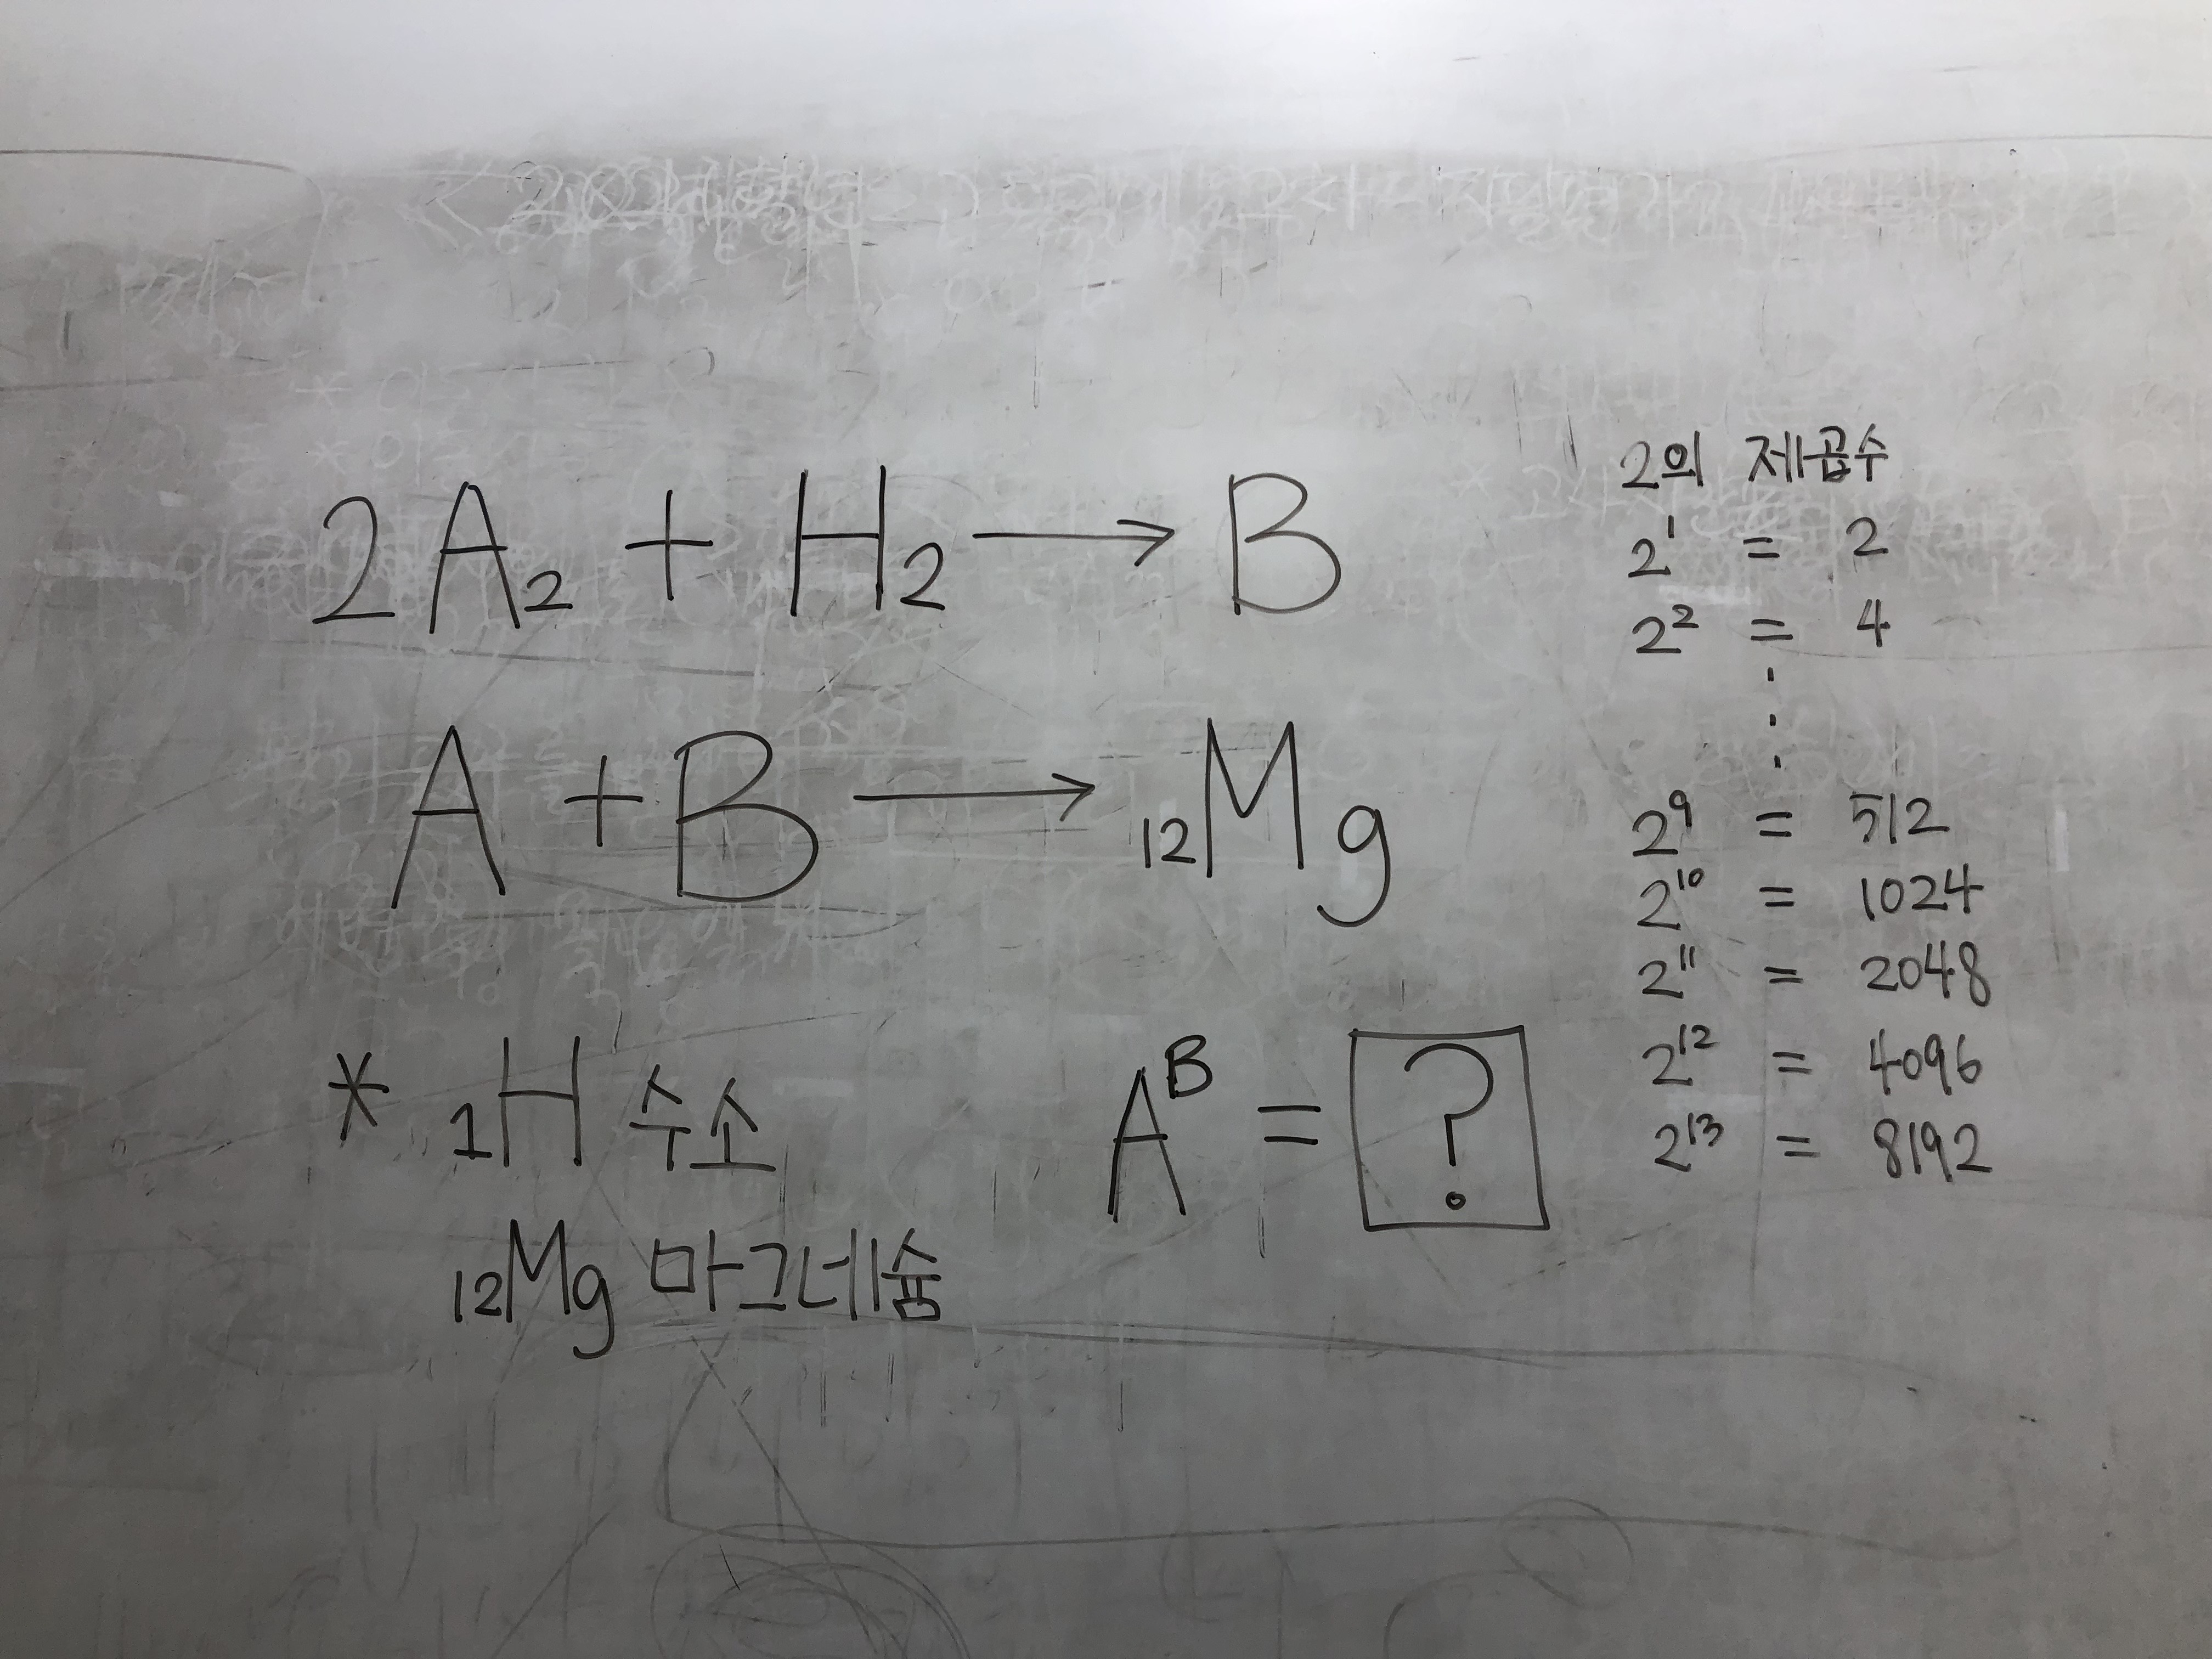 2A₂ + H₂ → B
A + B → ₁₂Mg
* ₁H 수소
₁₂Mg 마그네슘
Aᴮ = ?
2의 제곱수
2¹ = 2
2² = 4
⋮
2⁹ = 512
2¹⁰ = 1024
2¹¹ = 2048
2¹² = 4096
2¹³ = 8192